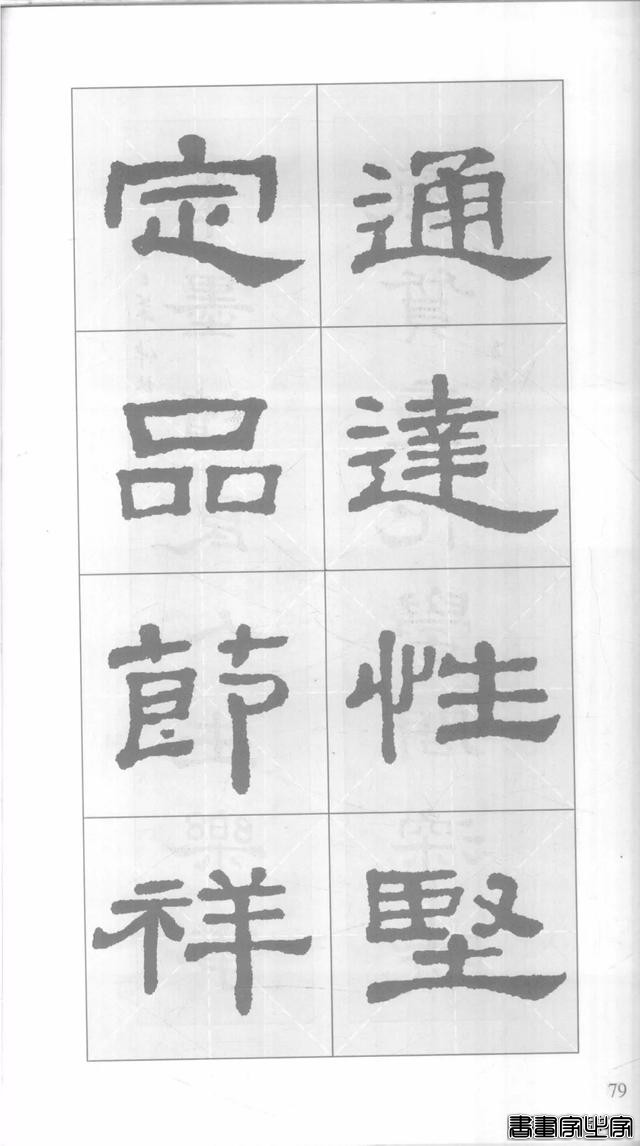 通達性堅
定品節祥
79
書畫家之家